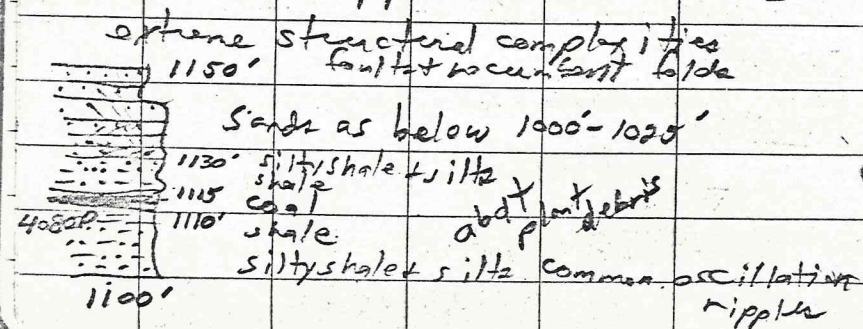 extreme structural complexities
1150' faults + recumbent folds
Sands as below 1000'-1025'
1130' silty shale + silts
shale
1115 coal
4082P. 1110' shale
abdt plant debris
silty shale + silts common oscillation
1100' ripples